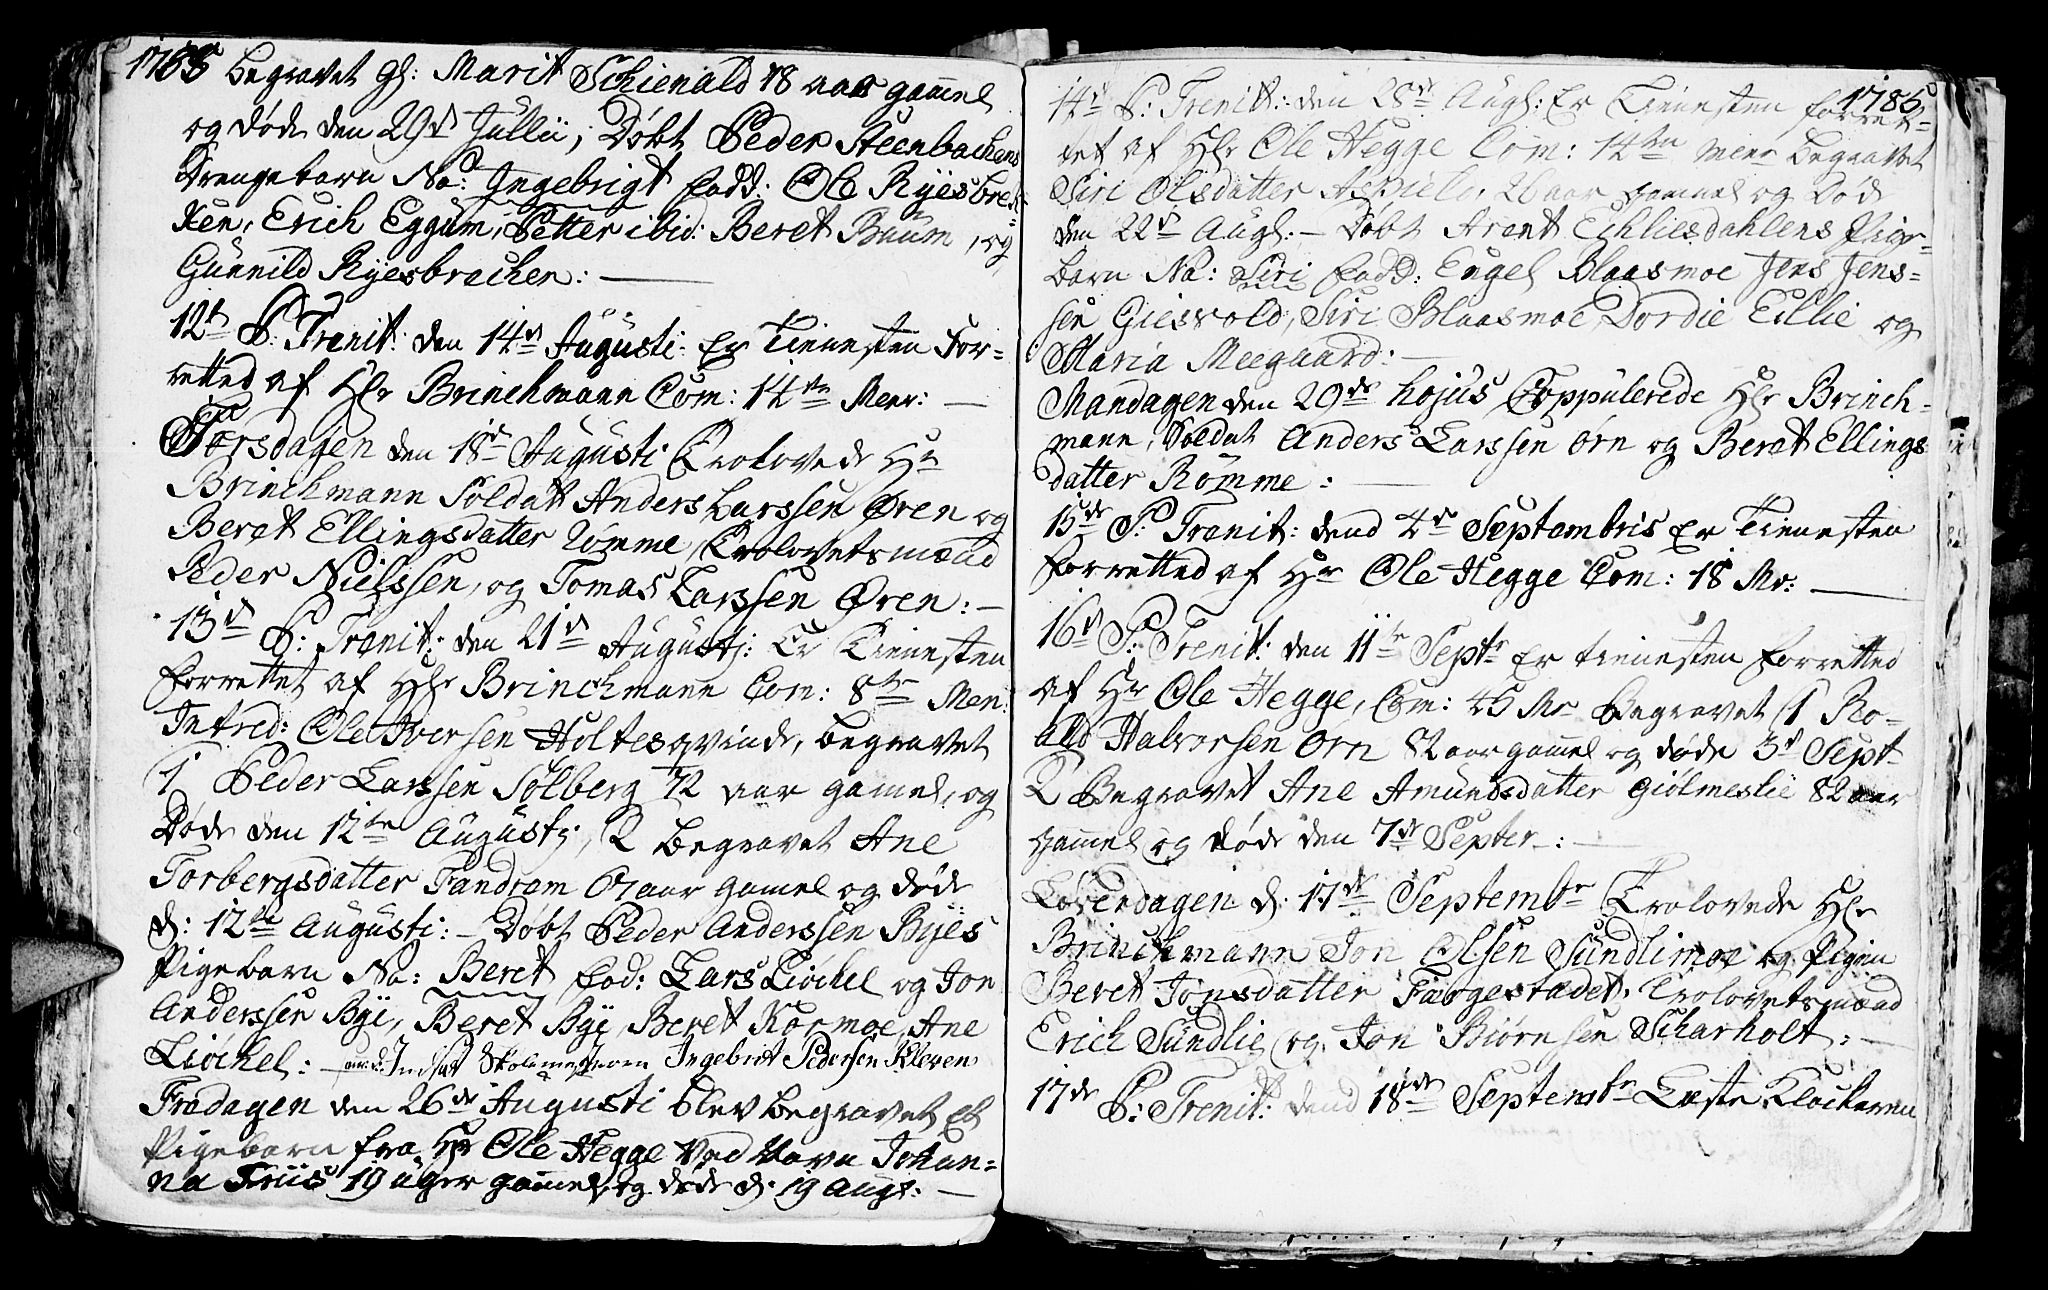 1785 begravet gl: Marit Schienald 78 aar gamel
og døde den 29d Jullii, Døbt Peder Steenbachens
Drengebarn Na: Ingebrigt Fadd: Ole Ryesbrek-
ken, Erich Eggum, Petter ibid: Beret Baum, og
Gunnild Ryesbrechen:
12te P: Trenit: den 14de Augusti: Er Tienesten For-
retted af Hr Brinchmann Com: 14ten Menr:
Torsdagen den 18de Augusti Trolovede Hr
Brinchmann Soldat Anders Larssen Øren og
Beret Ellingsdatter Römme, Trolovetsmænd
Peder Nielssen, og Tomas Larssen Øren:
13de P: Trenit: den 21de Augustj: Er Tienesten
forrettet af Hr Brinchmann Com: 8te Men:
Introd: Ole Iversen Holtesqvinde, begravet
1 Peder Larssen Solberg 72 aar gamel, og
Døde den 12te Augustj, 2 begravet Ane
Torbergsdatter Tandrom 67 aar gamel og døde
d: 12te Augusti: - Døbt Peder Anderssen Byes
Pigebarn Na: Beret Fad: Lars Liøchel og Jon
Anderssen Bye, Beret Bye, Beret Kormoe, Ane
Liøchel: Indsat Skolemesteren Ingebrigt Pedersen Kleven
Fredagen den 26de Augusti blev begravet et
Pigebarn fra Hr Ole Hegge ved Navn Johan-
na Friis 19 uger gamel, og døde d: 19 Augs:
1785
14de P: Trenit: den 28de Augs: Er Tienesten forret-
tet af Hr Ole Hegge Com: 14ten Menr begravet
Siri Olsdatter 26 aar gamel og Døde
den 22de Augs: - Døbt Arent Echliesdahlens Pige-
barn Na: Siri Fadd: Engel Blaasmoe Jens Jens-
sen Giesvold, Siri Blaasmoe, Dordie Eillie og
Maria Meegaard:
Mandagen den 29de hojus Coppulerede Hr Brinch-
mann, Soldat Anders Larssen Ørn og Beret Ellings
datter Römme:
15de P: Trenit: dend 4de Septembris Er Tienesten
forretted af Hr Ole Hegge Com: 18 Mr:
16de P: Trenit: den 11te Septr Er tienesten forretted
af Hr Ole Hegge, Com: 45 Mr Begravet 1 Ro-
ald Halvorsen Ørn 82 aar gamel og døde 3de Septr
2 Begravet Ane Amundsdatter Giölmeslie 82 aar
gamel og døde den 7de Septer:
Løverdagen d: 17de Septembr Trolovede Hr
Brinchmann Jon Olsen Sundlimoe og Pigen
Beret Jonsdatter Færgestadet, Trolovetsmænd
Erich Sundlie og Jon Biørnsen Scharholt:
17de P: Trenit: dend 18de Septembr Læste Klockeren